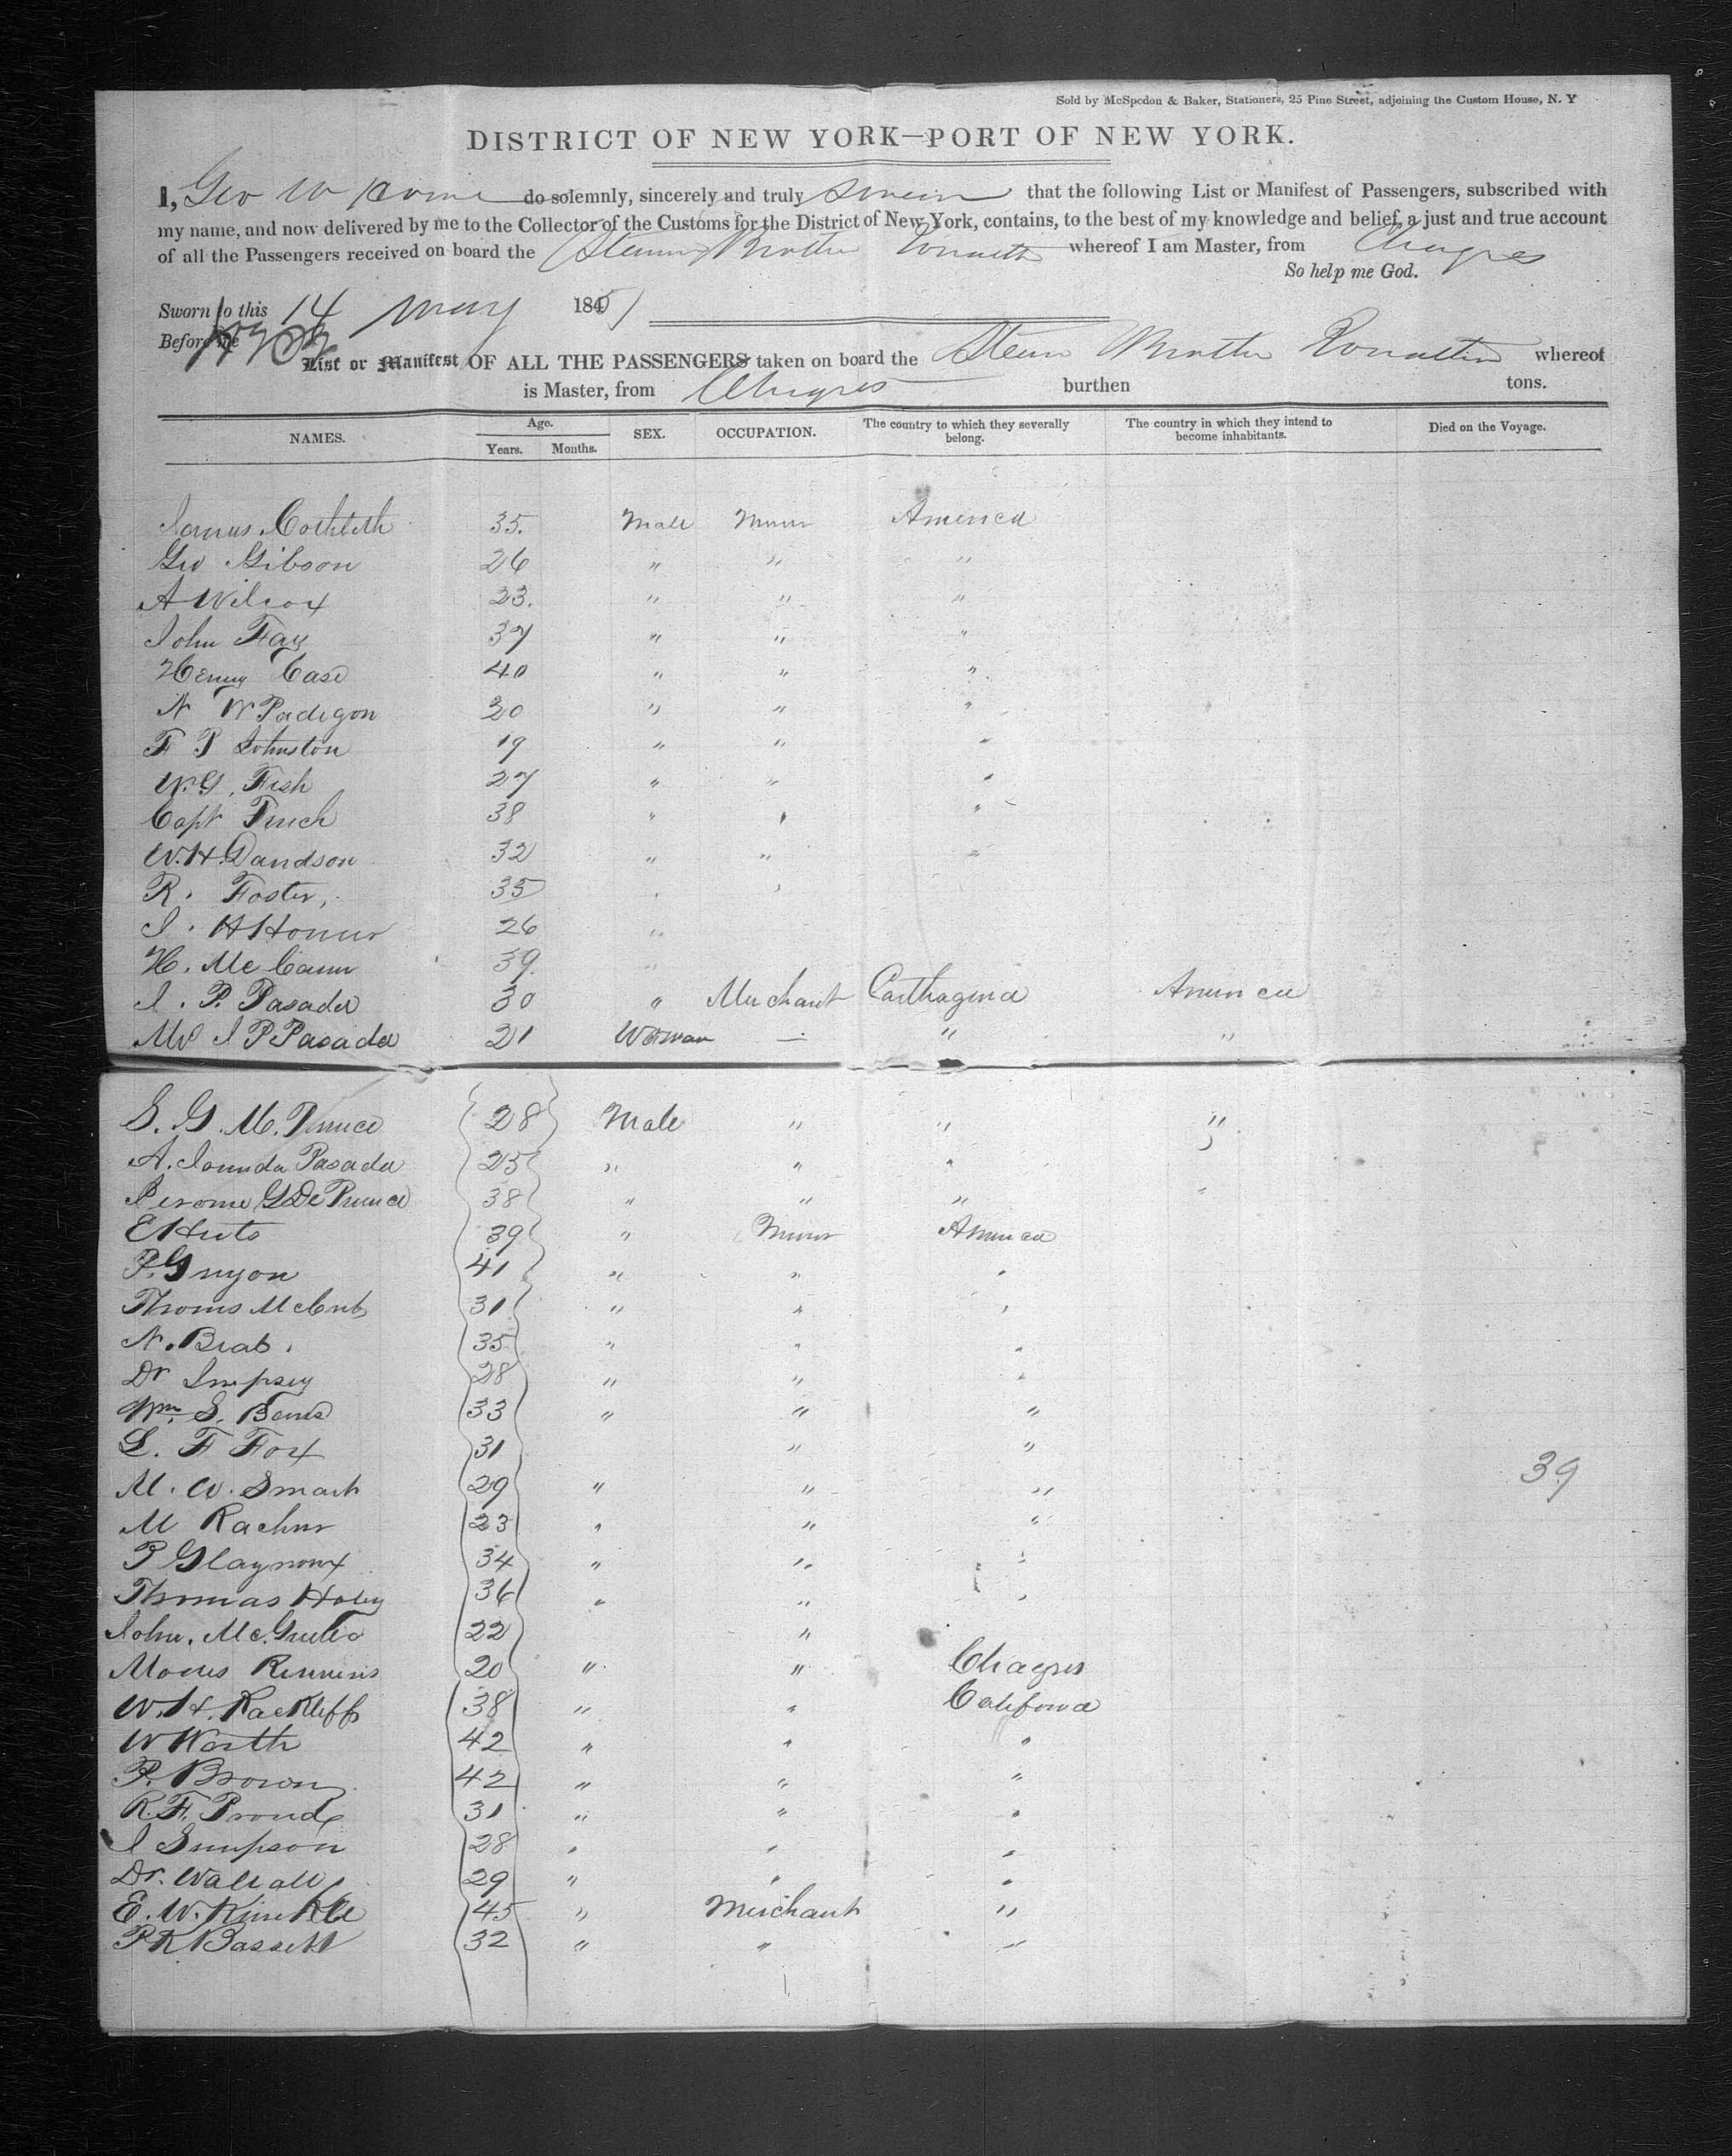 Sold by McSpedon & Baker, Stationers, 25 Pine Street, adjoining the Custom House, N. Y
DISTRICT OF NEW YORK—PORT OF NEW YORK.
I, Geo W do solemnly, sincerely and truly swear that the following List or Manifest of Passengers, subscribed with
my name, and now delivered by me to the Collector of the Customs for the District of New York, contains, to the best of my knowledge and belief, a just and true account
of all the Passengers received on board the Brother whereof I am Master, from Chagres
So help me God.
Sworn to this 14 May 1851
Before me
List or Manifest OF ALL THE PASSENGERS taken on board the Steam Brother whereof
is Master, from Chagres burthen tons.
NAMES. Age. Years. Months. SEX. OCCUPATION. The country to which they severally belong. The country in which they intend to become inhabitants. Died on the Voyage.
James 35. Male Miner America
Geo Gibson 26 " " "
A Wilcox 23. " " "
John Fay 37 " " "
Henry Case 40 " " "
N W Padigon 30 " " "
F P Johnston 19 " " "
W. G. Fish 27 " " "
Capt Finch 38 " " "
W. H. Davidson 32 " " "
R. Foster, 35 " "
J. H 26 "
H. McCann 39. "
J. P. Pasada 30 " Merchant Carthagena America
J P Pasada 21 Woman — " "
S. G. M. 28 Male " " "
A. Pasada 25 " " " "
Jerome G De 38 " " " "
E 39 " Miner America
P. Guyon 41 " " "
Thomas 31 " " "
N. 35 " " "
Dr 28 " " "
Wm. S. 33 " " "
L. F Fox 31 " "
M. W. Smart 29 " " "
39
M 23 " " "
P 34 " " "
Thomas 36 " " "
John. 22 "
20 " " Chagres
W. H. Rackliff 38 " " California
W Worth 42 " " "
P. Brown 42 " " "
R. F. Proud 31 " " "
J Simpson 28 " " "
Dr. 29 " " "
E. W. 45 " Merchant "
P R Bassett 32 " " "